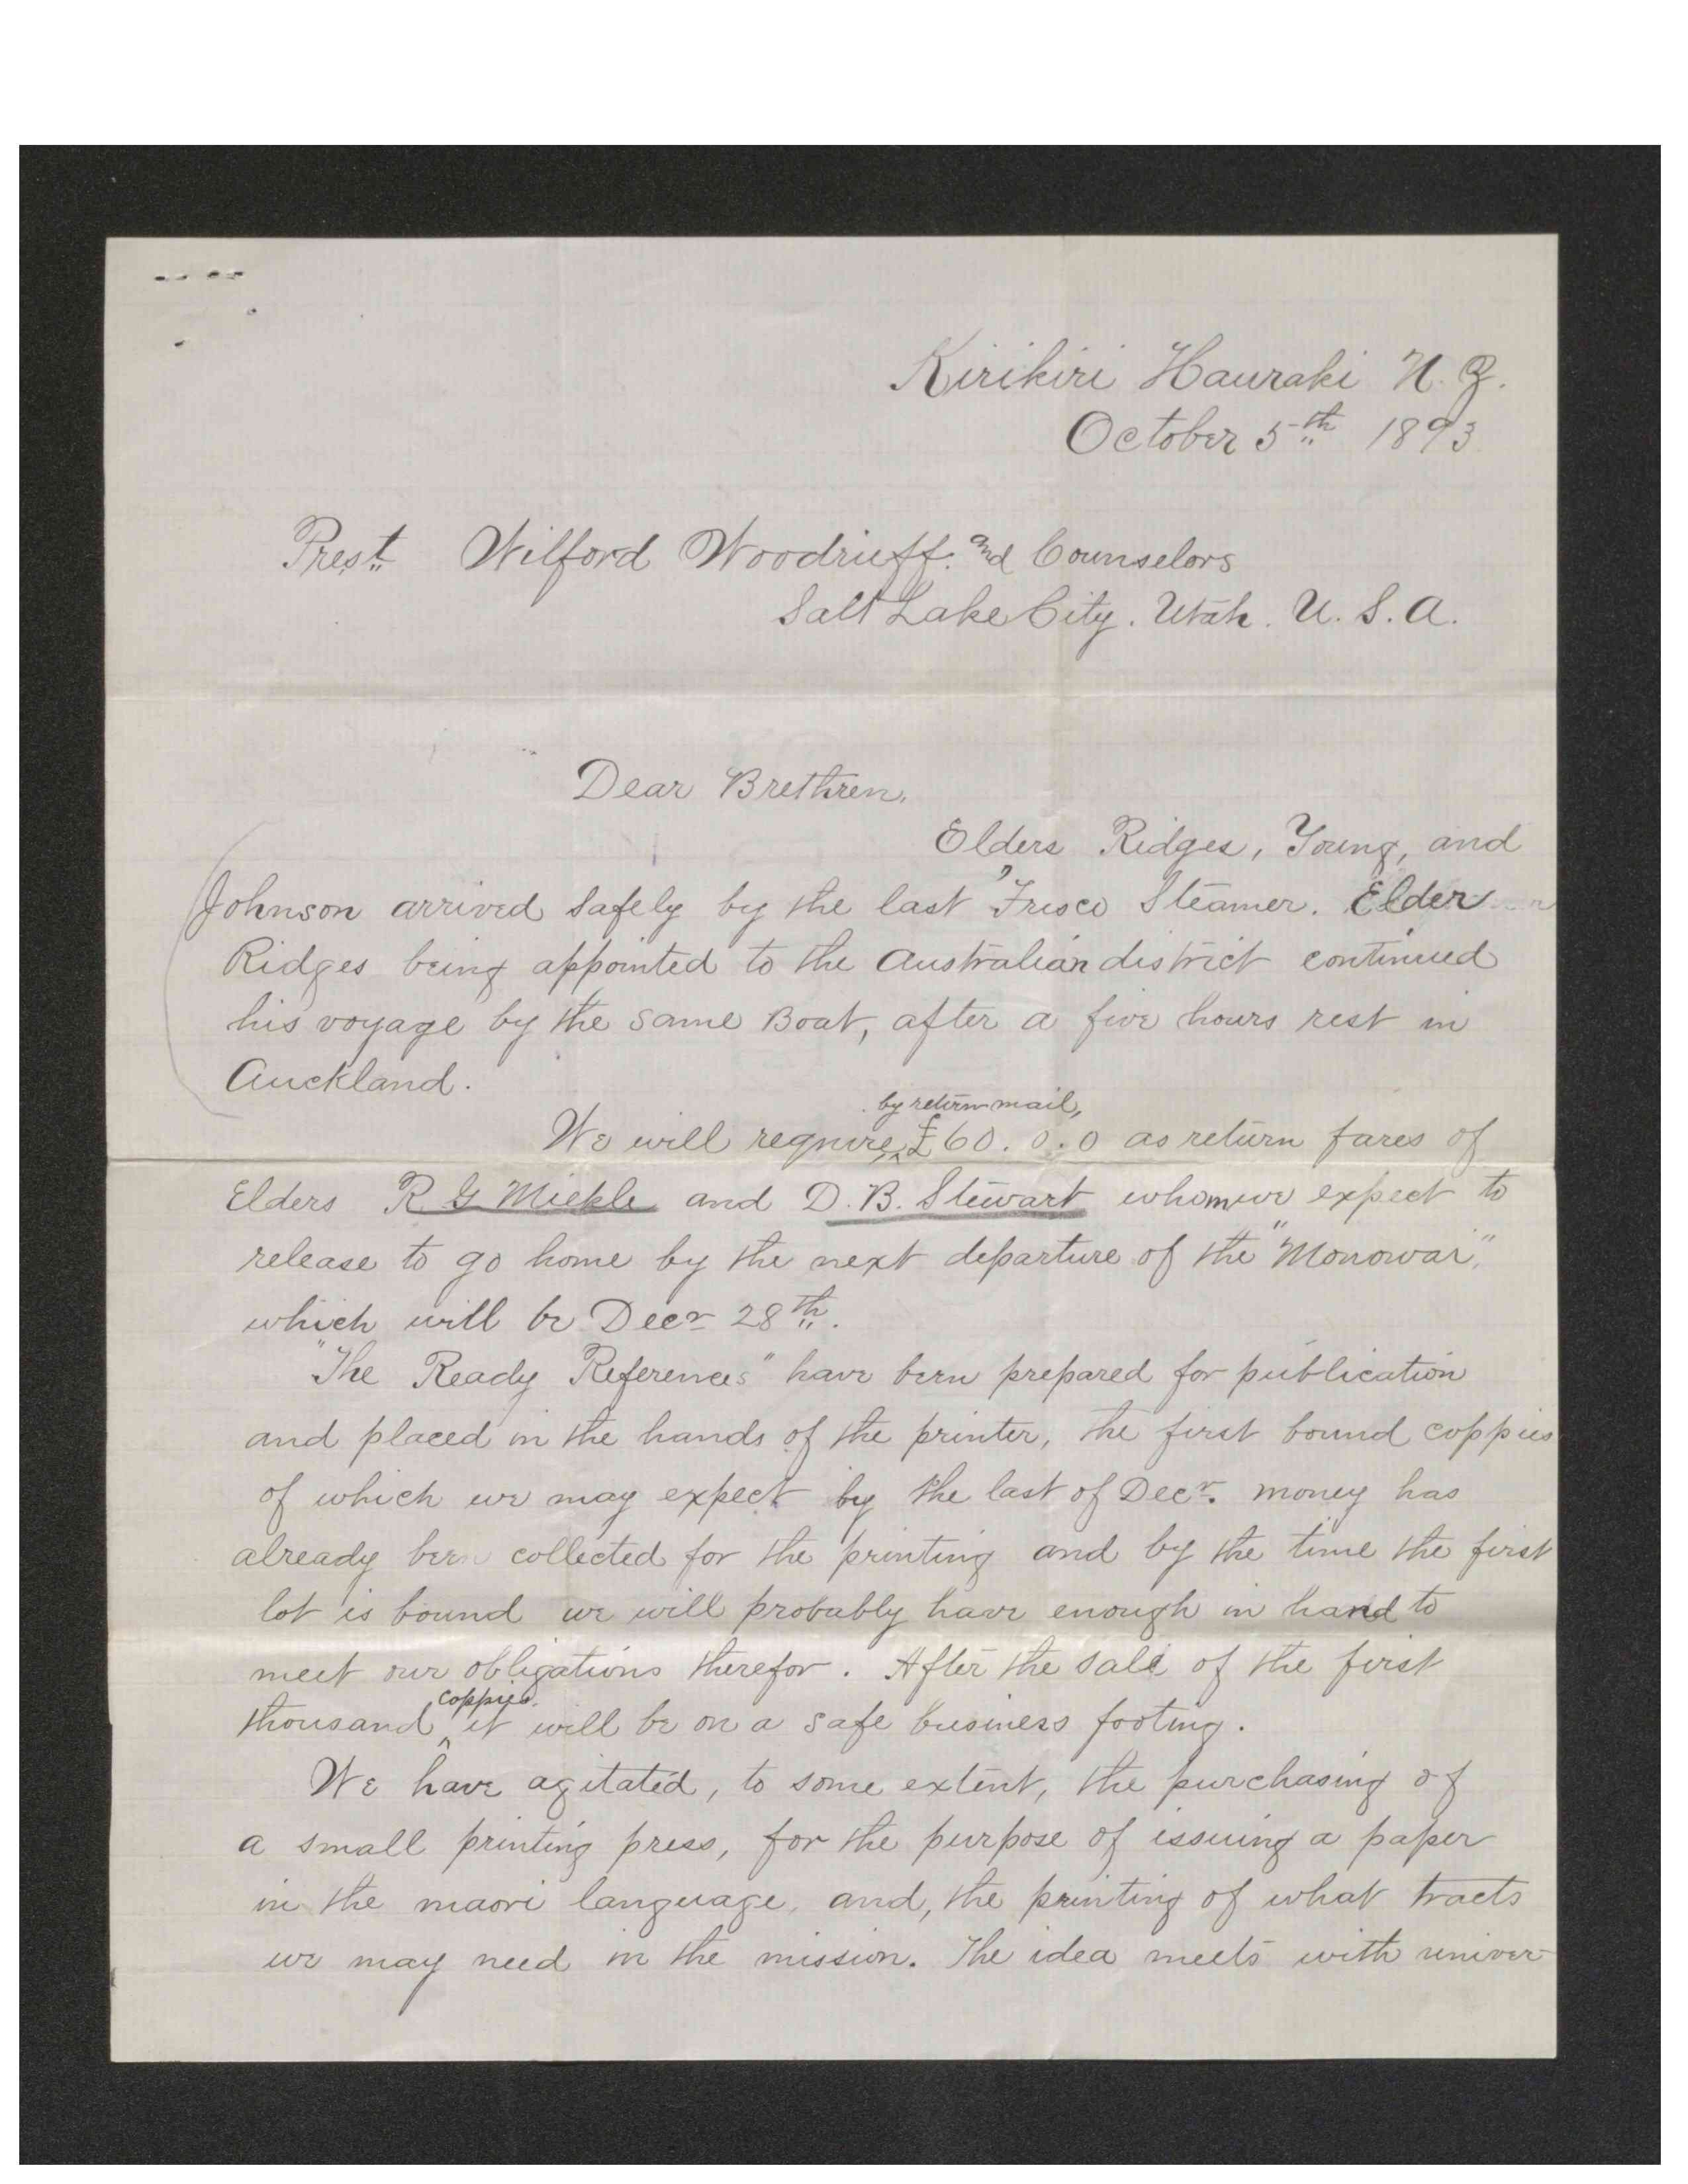 Kirikiri Hauraki N. Z.
October 5th 1893
Prest Wilford Woodruff. and Counselors
Salt Lake City. Utah. U. S. A.
Dear Brethren.
Elders Ridges, Young, and
Johnson arrived safely by the last 'Frisco Steamer. Elder
Ridges being appointed to the Australian district continued
his voyage by the same Boat, after a five hours rest in
Auckland.
by return mail,
We will require, £60. 0. 0 as return fares of
Elders R G Miekle and D. B. Stewart whom we expect to
release to go home by the next departure of the "Monowai,"
which will be Decr 28th.
"The Ready References" have been prepared for publication
and placed in the hands of the printer, the first bound coppies
of which we may expect by the last of Decr. money has
already been collected for the printing and by the time the first
lot is bound we will probably have enough in hand to
meet our obligations therefor. After the sale of the first
coppies.
thousand ^ it will be on a safe business footing.
We have agitated, to some extent, the purchasing of
a small printing press, for the purpose of issuing a paper
in the maori language, and, the printing of what tracts
we may need in the mission. The idea meets with univer-